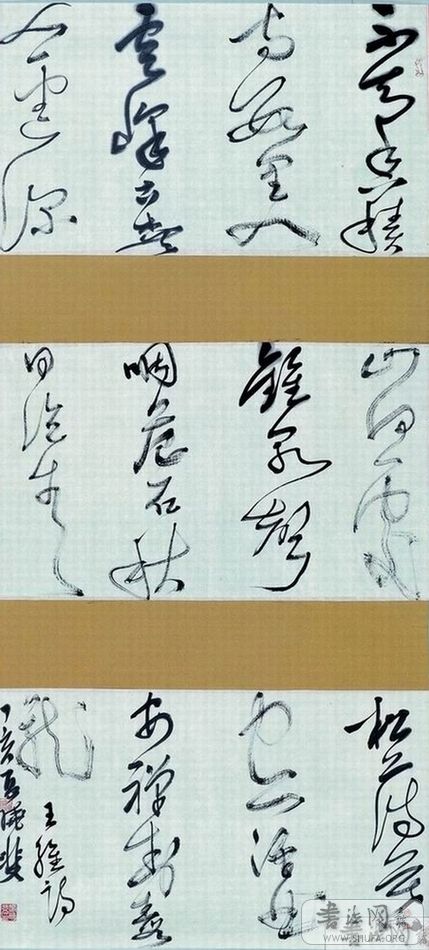 不知香積
寺數里入
雲峰古木無
人逕深
山何處
鐘泉聲
咽危石
日冷青
松薄暮
空潭曲
安禪制毒
龍
王維詩
丁亥夏
書法网
WWW.SHUFA.ORG